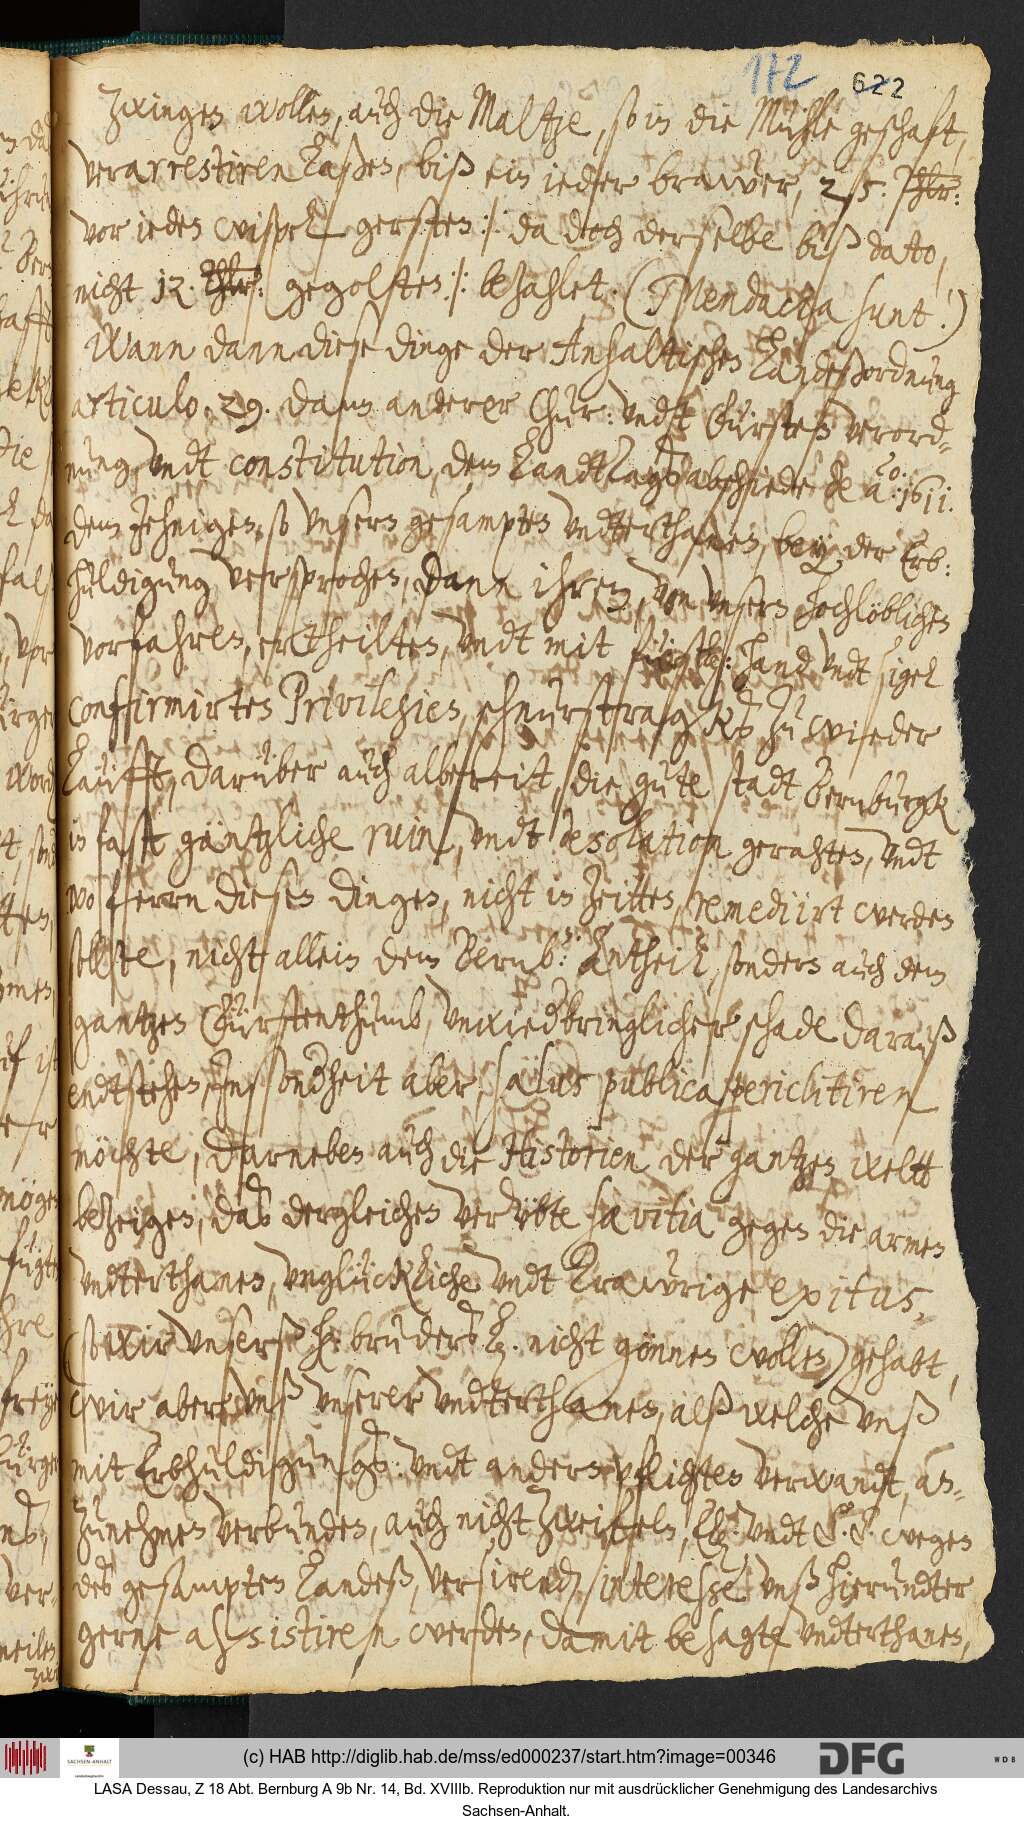 172 622
Zwingen wollen, auch die Maltze, so in die Mühle geschaft,
verarrestiren laßen, biß ein ieder brawer, 25: Thlr:
vor iedes wispel gersten :/: da doch derselbe biß dato,
nicht 12. Thlr: gegolften :/: bezahlet. (Mendacia sunt!)
Wann dann diese dinge der Anhaltischen Landeßordnung
articulo. 29. dann anderer Chur: undt Fürsten verord-
nung, undt constitution, dem Landtlagsabschiede de ao: 1611.
dem Jehnigen, so unsern gesampten undterthanen, bey der Erb:
huldigung versprochen, dann ihren, von unsern hochlöblichen
vorfahren, ertheilten, undt mit fürstl: hand undt sigel
confirmirten Privilegien, schnurstragks zu wieder
laüfft, darüber auch albereit, die gute stadt Bernburgk
in fast gäntzliche ruin, undt desolation gerahten, undt
wo ferrn diesen dingen, nicht in Zeitten, remediirt werden
sollte, nicht allein dem Bernb: Antheil, sondern auch dem
gantzen Fürstenthumb, unwiedbringlicher schade darauß
endtstehen, Insonderheit aber, salus publica periclitiren
möchte, darneben auch die Historien der gantzen weltt
bezeigen, das dergleichen verübte sævitia gegen die armen
undterthanen, unglückliche undt trawrige exitus,
(so wir unsers H: bruders L. nicht gönnen wollen) gehabt,
wir aber unß unserer undterthanen, alß welche unß
mit Erbhuldigungs: undt andern pflichten verwandt, an-
zunehmen verbunden, auch nicht zweifeln, Ew: undt L. L. wegen
des gesampten Landeß, versirend interesse unß hierundter
gerne assistiren werden, damit besagte undterthanen,
(c) HAB http://diglib.hab.de/mss/ed000237/start.htm?image=00346
DFG
WDB
SACHSEN-ANHALT
LASA Dessau, Z 18 Abt. Bernburg A 9b Nr. 14, Bd. XVIIIb. Reproduktion nur mit ausdrücklicher Genehmigung des Landesarchivs
Sachsen-Anhalt.